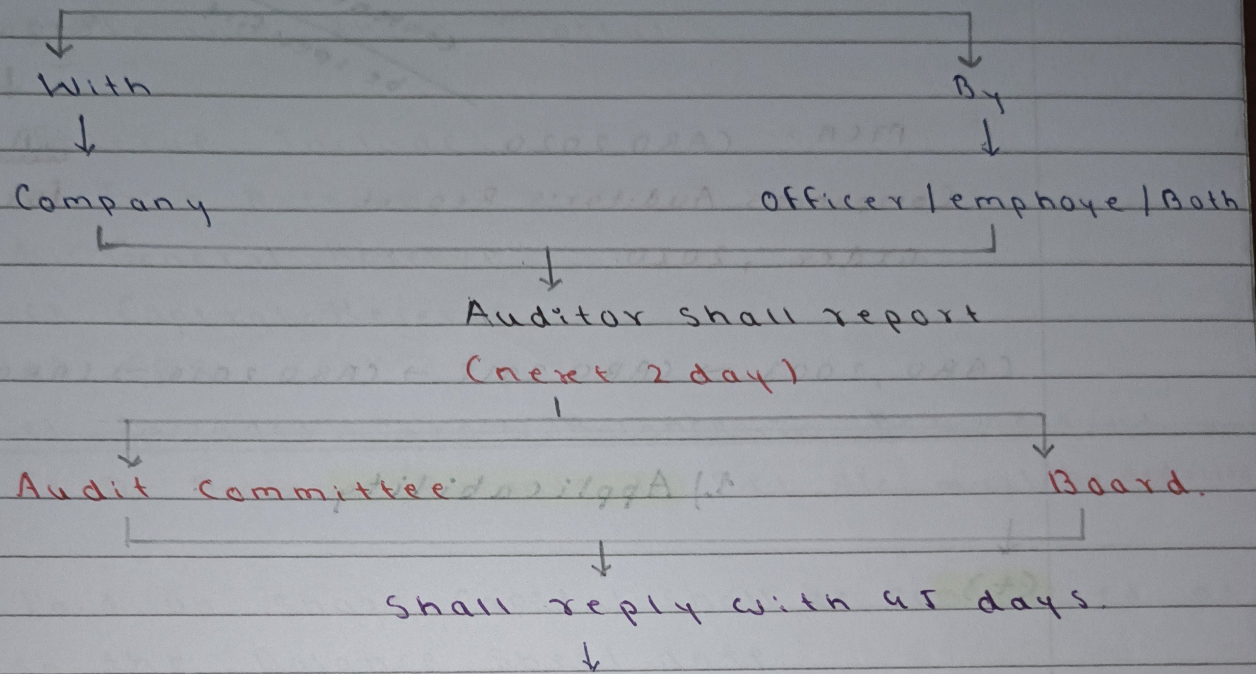 With By
Company Officer / emphoye / Both
Auditor shall report
(next 2 day)
Audit committee Board.
Shall reply with 45 days.